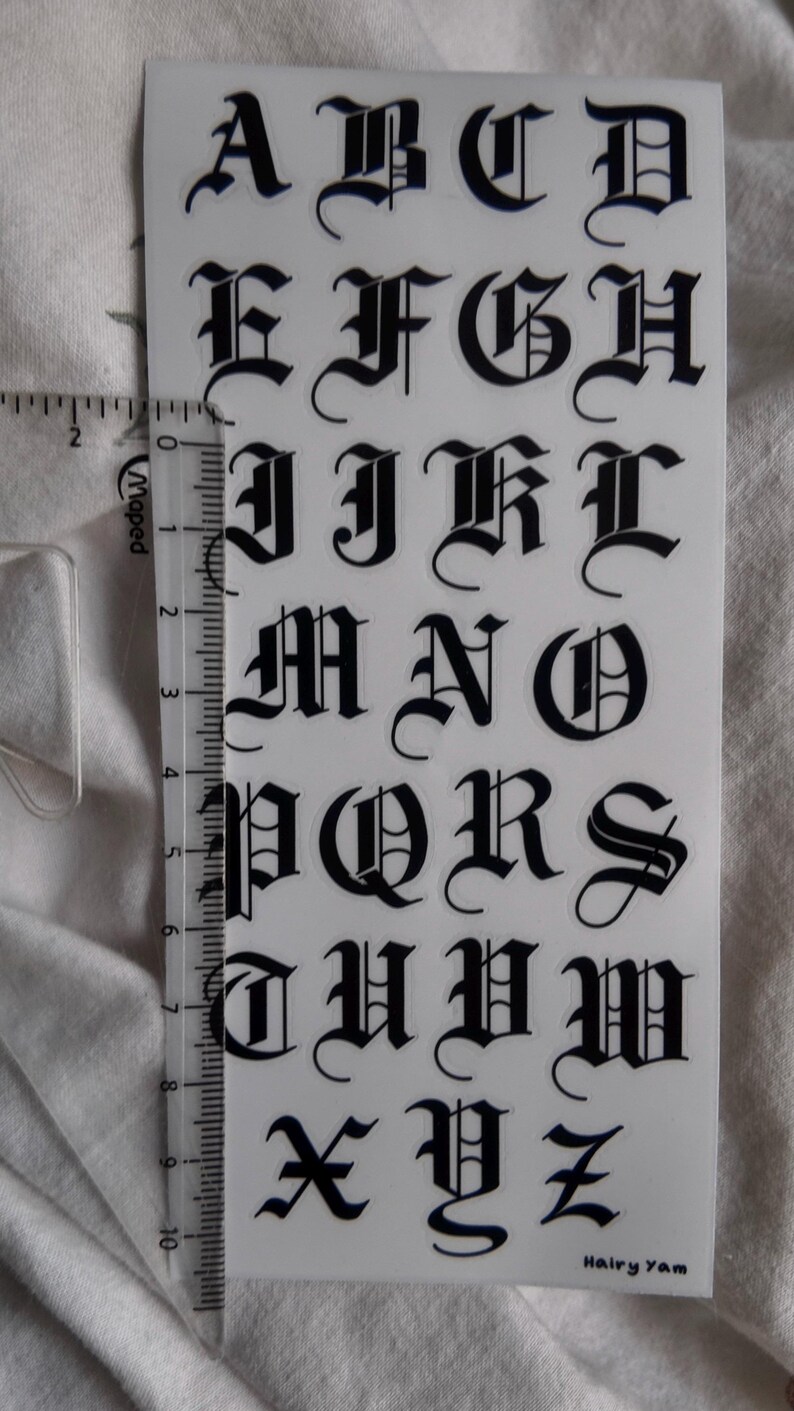 A B C D
E F G H
I J K L
M N O
P Q R S
T U V W
X Y Z
Hairy Yam
2
Maped
0
1
2
3
4
5
6
7
8
9
10